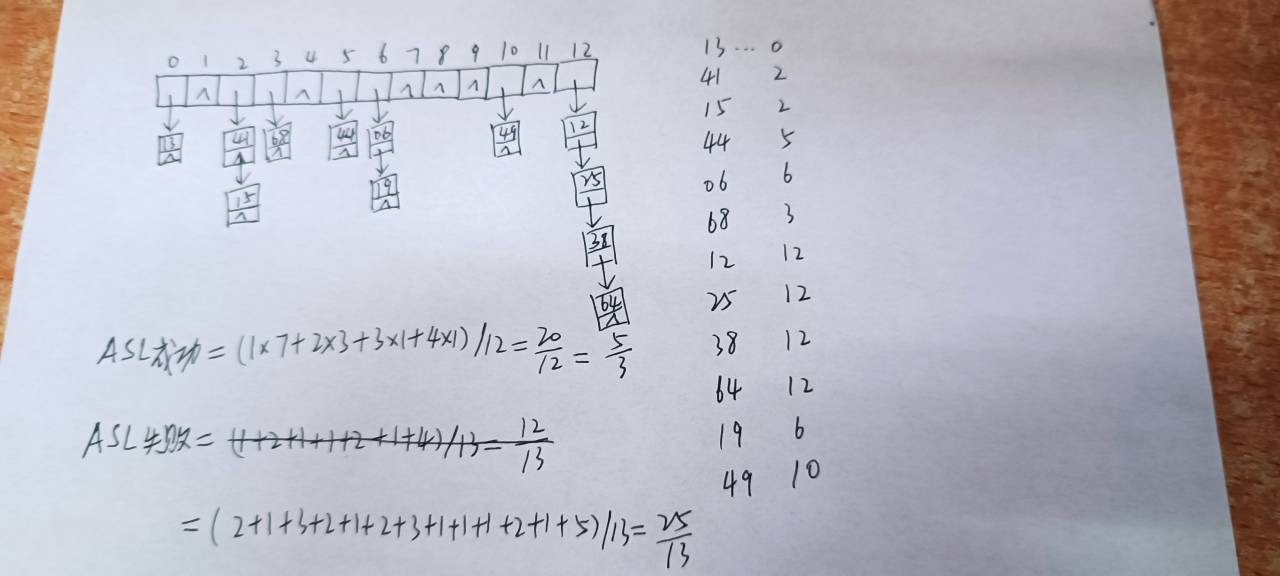 0 1 2 3 4 5 6 7 8 9 10 11 12
∧ ∧ ∧ ∧ ∧ ∧
13 41 68 44 06 49 12
∧ ∧ ∧ ∧ ∧
15 19 25
∧ ∧
38
64
∧
ASL成功=(1×7+2×3+3×1+4×1)/12=20/12=5/3
ASL失败=(1+2+1+1+2+1+4)/13=12/13
=(2+1+3+2+1+2+3+1+1+1+2+1+5)/13=25/13
13...0
41 2
15 2
44 5
06 6
68 3
12 12
25 12
38 12
64 12
19 6
49 10